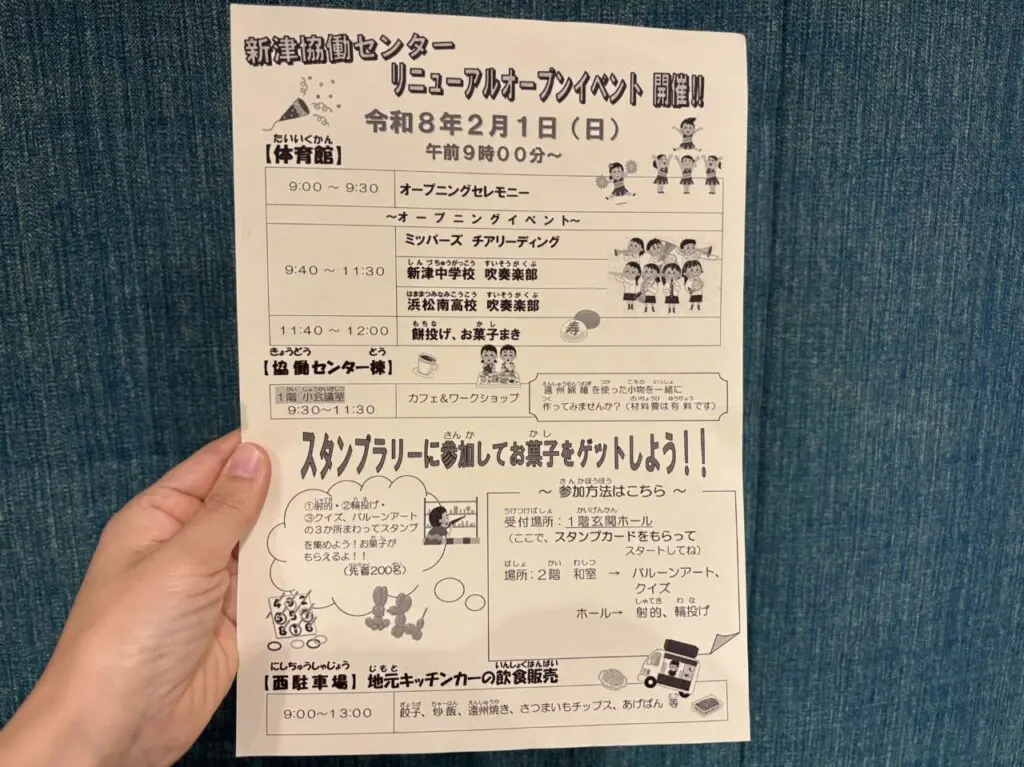 新津協働センター
リニューアルオープンイベント 開催!!
令和8年2月1日(日)
午前9時00分~
たいいくかん
【体育館】
9:00 ~ 9:30 オープニングセレモニー
~オープニングイベント~
ミッパーズ チアリーディング
9:40 ~ 11:30
しんづちゅうがっこう すいそうがくぶ
新津中学校 吹奏楽部
はままつみなみこうこう すいそうがくぶ
浜松南高校 吹奏楽部
もちな かし
11:40 ~ 12:00 餅投げ、お菓子まき
寿
きょうどう とう
【協働センター棟】
かい しょうかいぎしつ
1階 小会議室
9:30~11:30
カフェ&ワークショップ
つか こもの いっしょ
遠州綿紬を使った小物を一緒に
つく ざいりょうひ ゆうりょう
作ってみませんか?(材料費は有料です)
さんか かし
スタンプラリーに参加してお菓子をゲットしよう!!
しゃてき わな
①射的・②輪投げ・
③クイズ、バルーンアート
の3か所まわってスタンプ
を集めよう!お菓子が
もらえるよ!!
(先着200名)
さんかほうほう
~ 参加方法はこちら ~
うけつけばしょ かいげんかん
受付場所:1階玄関ホール
(ここで、スタンプカードをもらって
スタートしてね)
ばしょ かい わしつ
場所:2階 和室 → バルーンアート、
クイズ
しゃてき わな
ホール→ 射的、輪投げ
にしちゅうしゃじょう じもと いんしょくはんばい
【西駐車場】地元キッチンカーの飲食販売
ぎょうざ ちゃーはん えんしゅうや
9:00~13:00 餃子、炒飯、遠州焼き、さつまいもチップス、あげぱん 等